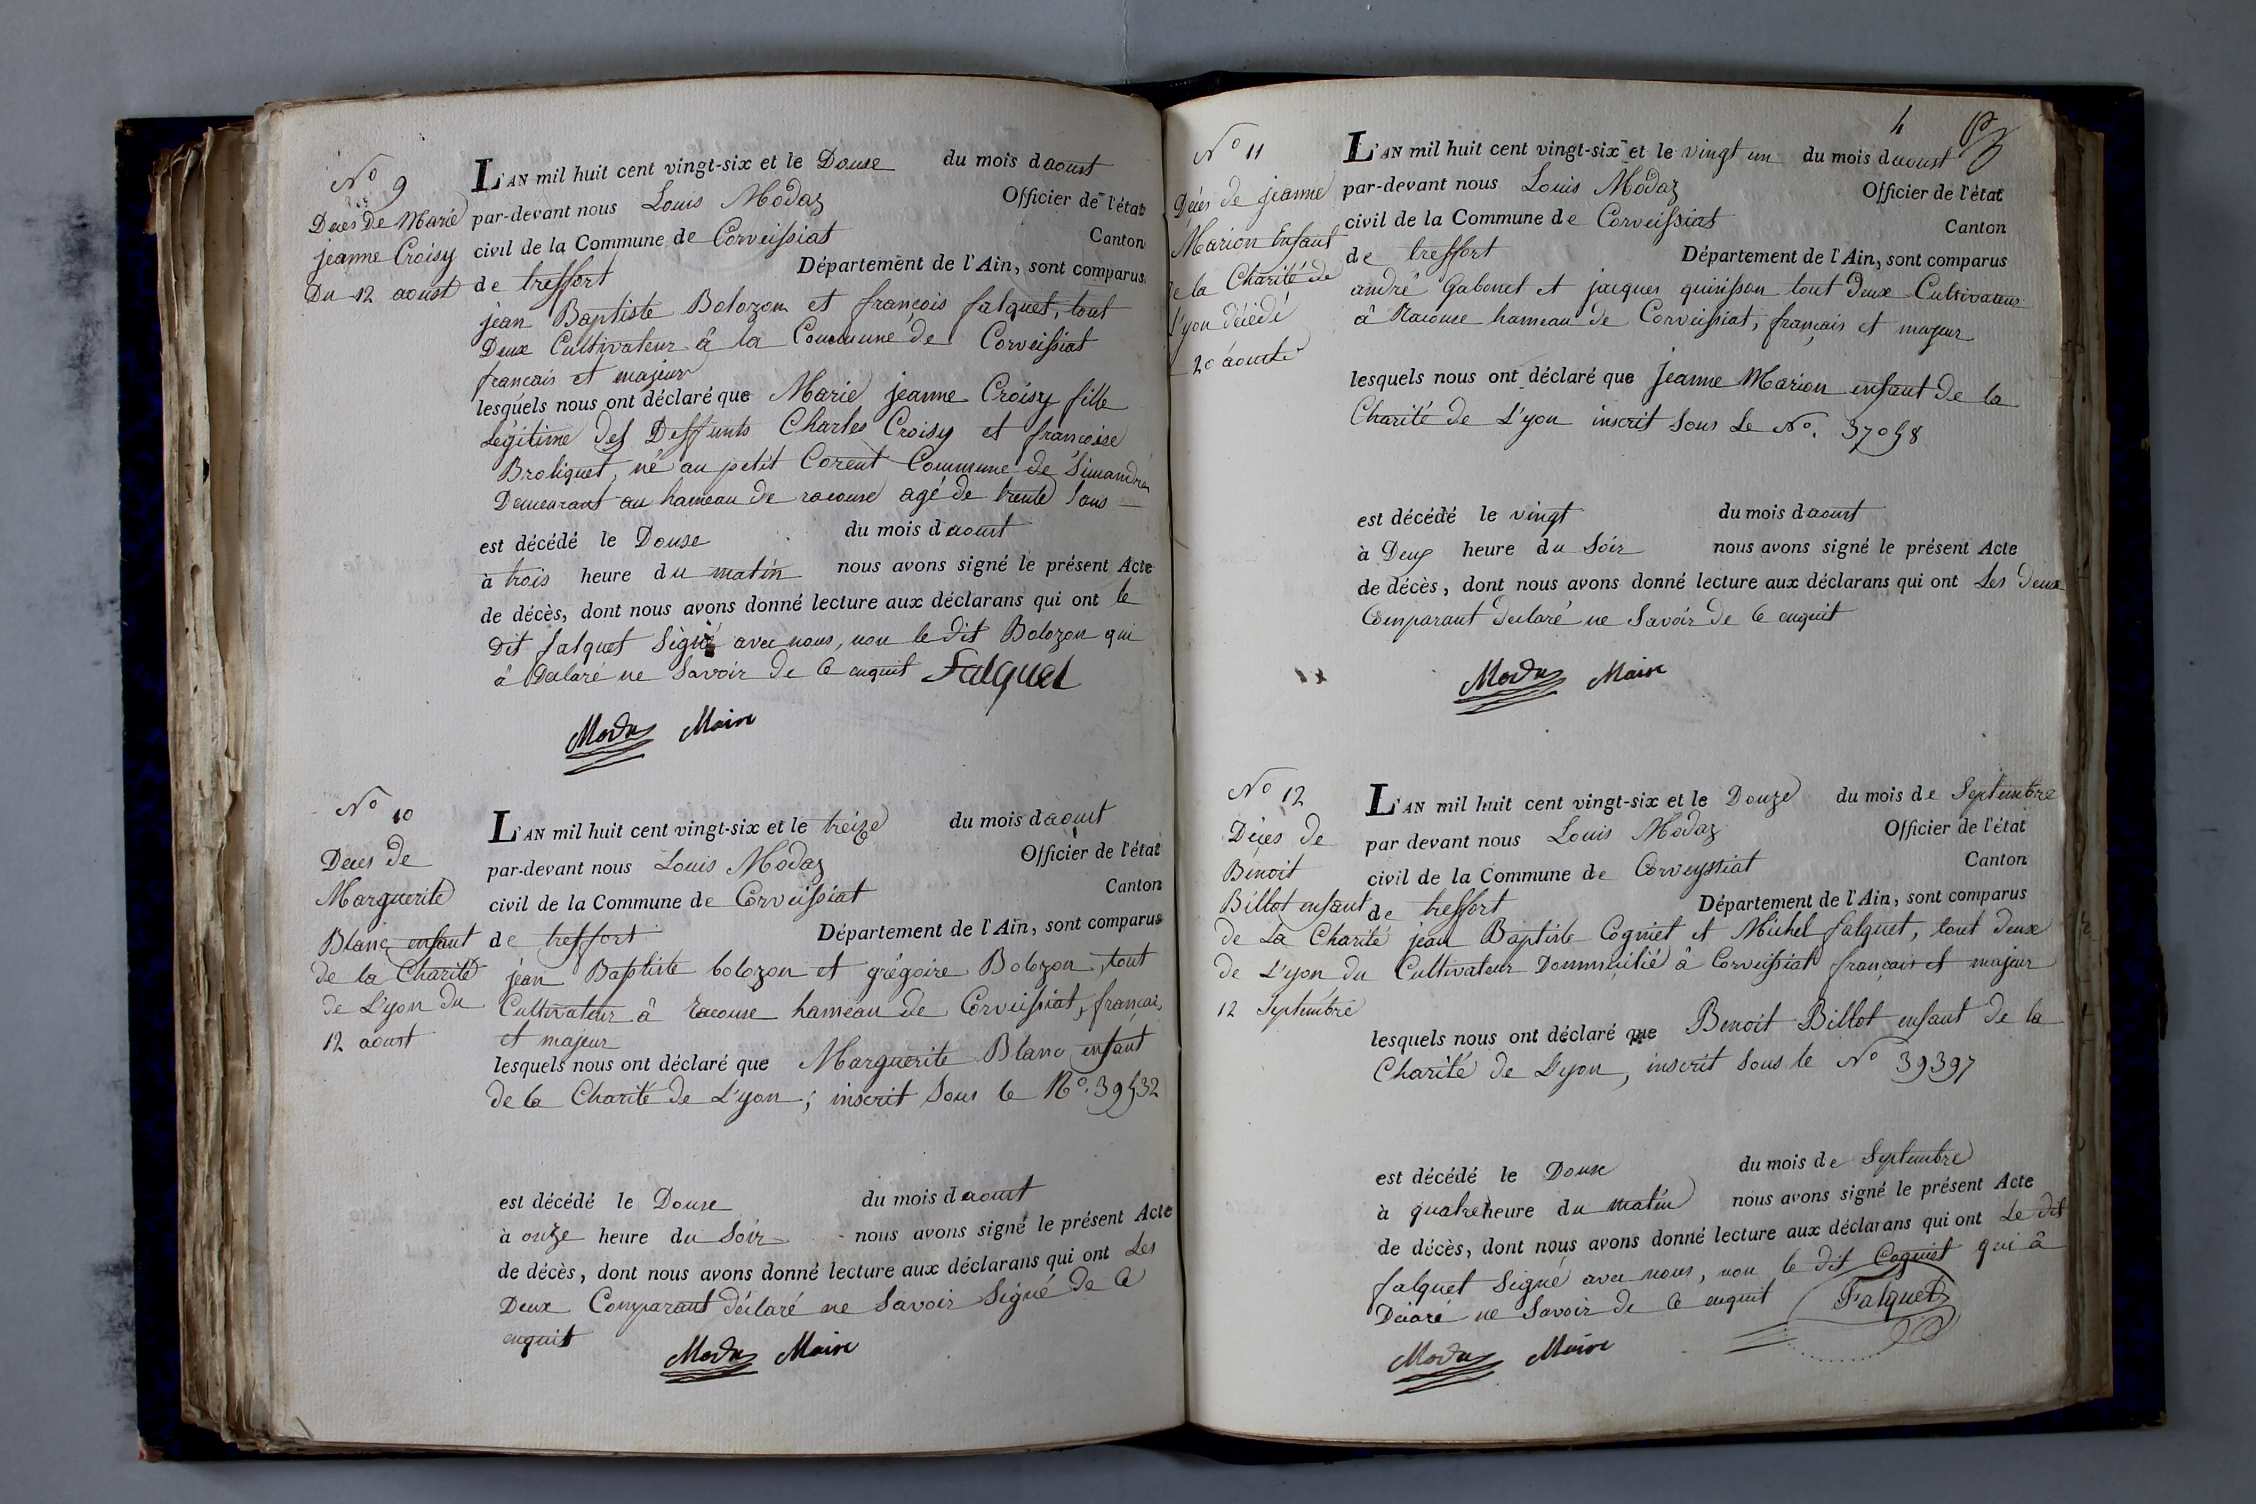 N° 9
Deces De Marie
jeanne Croisy
Du 12 aoust
L'AN mil huit cent vingt-six et le Douse du mois d aoust
par-devant nous Louis Modaz Officier de l'état
civil de la Commune de Corveissiat Canton
de treffort Département de l'Ain, sont comparus
jean Baptiste Bolozon et francois falquet, tout
Deux Cultivateur â la Commune de Corveissiat
francais et majeur
lesquels nous ont déclaré que Marie jeanne Croisy fille
Légitime des Deffunts Charles Croisy et francoise
Broliquet, né au petit Corent Commune de Simandre
Demeurant au hameau de racouse agé de trente
est décédé le Douse du mois d aoust
à trois heure du matin nous avons signé le présent Acte
de décès, dont nous avons donné lecture aux déclarans qui ont le
Dit falquet Signé avec nous, non le dit Bolozon qui
â Déclaré ne Savoir de Ce enquit Falquet
Modas Maire
N° 10
Deces de
Marguerite
Blanc enfant
de la Charité
de L'yon du
12 aoust
L'AN mil huit cent vingt-six et le treize du mois d aoust
par-devant nous Louis Modaz Officier de l'état
civil de la Commune de Corveissiat Canton
de treffort Département de l'Ain, sont comparus
jean Baptiste bolozon et grégoire Bolozon, tout
Cultivateur â racouse hameau de Corveissiat, francais
et majeur
lesquels nous ont déclaré que Marguerite Blanc enfant
de la Charité de L'yon; inscrit Sous le N°. 39532
est décédé le Douse du mois d aoust
à onze heure du Soir nous avons signé le présent Acte
de décès, dont nous avons donné lecture aux déclarans qui ont Les
Deux Comparant déclaré ne Savoir Signé de Ce
enquit
Modas Maire
4
N° 11
Décés de jeanne
Marion Enfant
de la Charité de
L'yon décédé
20 aoust
L'AN mil huit cent vingt-six et le vingt un du mois d aoust
par-devant nous Louis Modaz Officier de l'état
civil de la Commune de Corveissiat Canton
de treffort Département de l'Ain, sont comparus
andré Gabonet et jacques quinsson tout Deux Cultivateur
â Racouse hameau de Corveissiat, francais et majeur
lesquels nous ont déclaré que jeanne Marion enfant de la
Charité de L'yon inscrit Sous Le N°. 37058
est décédé le vingt du mois d aoust
à Deux heure du Soir nous avons signé le présent Acte
de décès, dont nous avons donné lecture aux déclarans qui ont Les Deux
Comparant declaré ne Savoir de Ce enquit
Modas Maire
N° 12
Décés de
Bénoit
Billot enfant
de La Charité
de L'yon du
12 Septembre
L'AN mil huit cent vingt-six et le Douze du mois de Septembre
par devant nous Louis Modaz Officier de l'état
civil de la Commune de Corveyssiat Canton
de treffort Département de l'Ain, sont comparus
jean Baptiste Cogniet et Michel falquet, tout deux
Cultivateur Dommicilié â Corveissiat francais et majeur
lesquels nous ont déclaré que Benoit Billot enfant de la
Charité de L'yon, inscrit Sous le N° 39397
est décédé le Douse du mois de Septembre
à quatre heure du matin nous avons signé le présent Acte
de décès, dont nous avons donné lecture aux déclarans qui ont Le dit
falquet Signé avec nous, non le dit Cogniet qui â
Déclaré ne Savoir de Ce enquit Falquet
Modas Maire